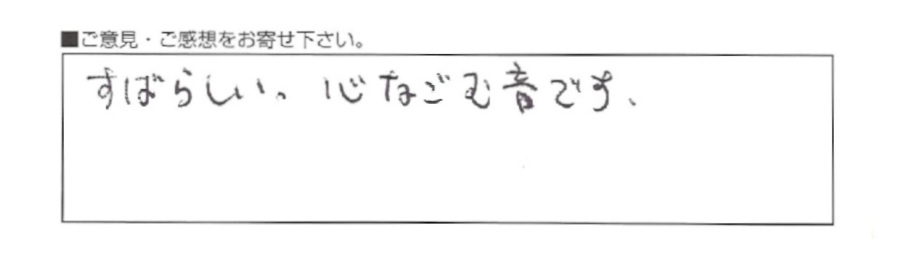 ■ご意見・ご感想をお寄せ下さい。
すばらしい。心なごむ音です、